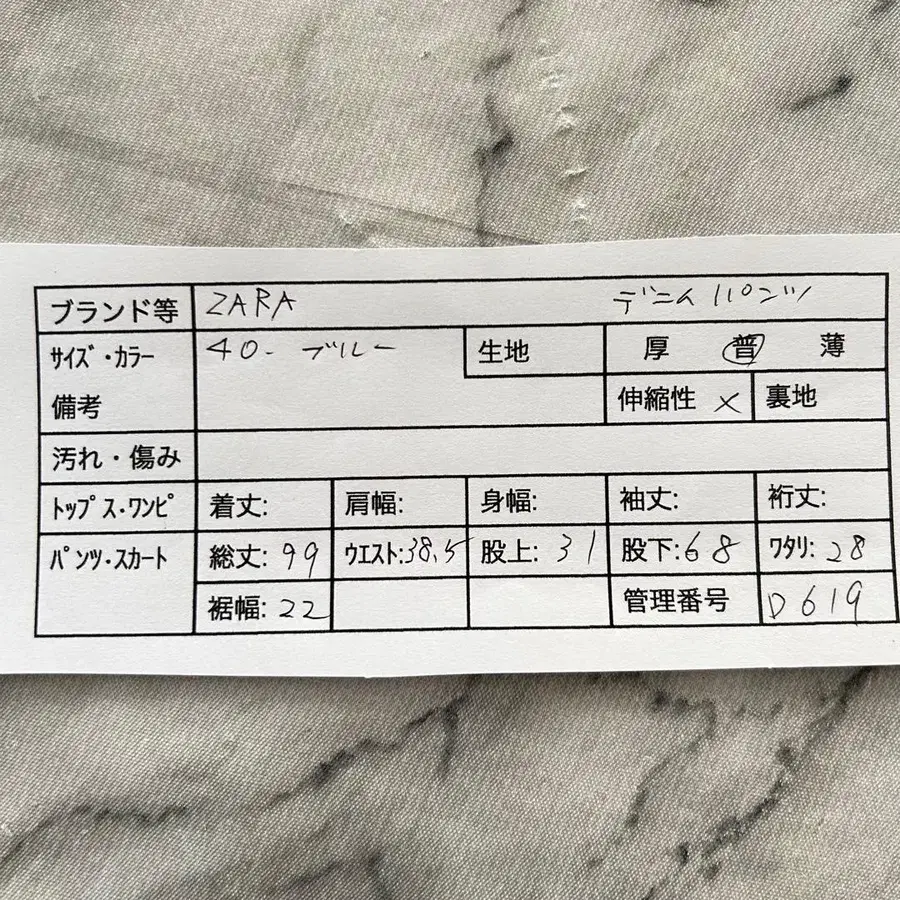 ブランド等 ZARA デニムパンツ
サイズ・カラー 40- ブルー 生地 厚 普 薄
備考 伸縮性 × 裏地
汚れ・傷み
トップス・ワンピ 着丈: 肩幅: 身幅: 袖丈: 裄丈:
パンツ・スカート 総丈: 99 ウエスト: 38.5 股上: 31 股下: 68 ワタリ: 28
裾幅: 22 管理番号 D619